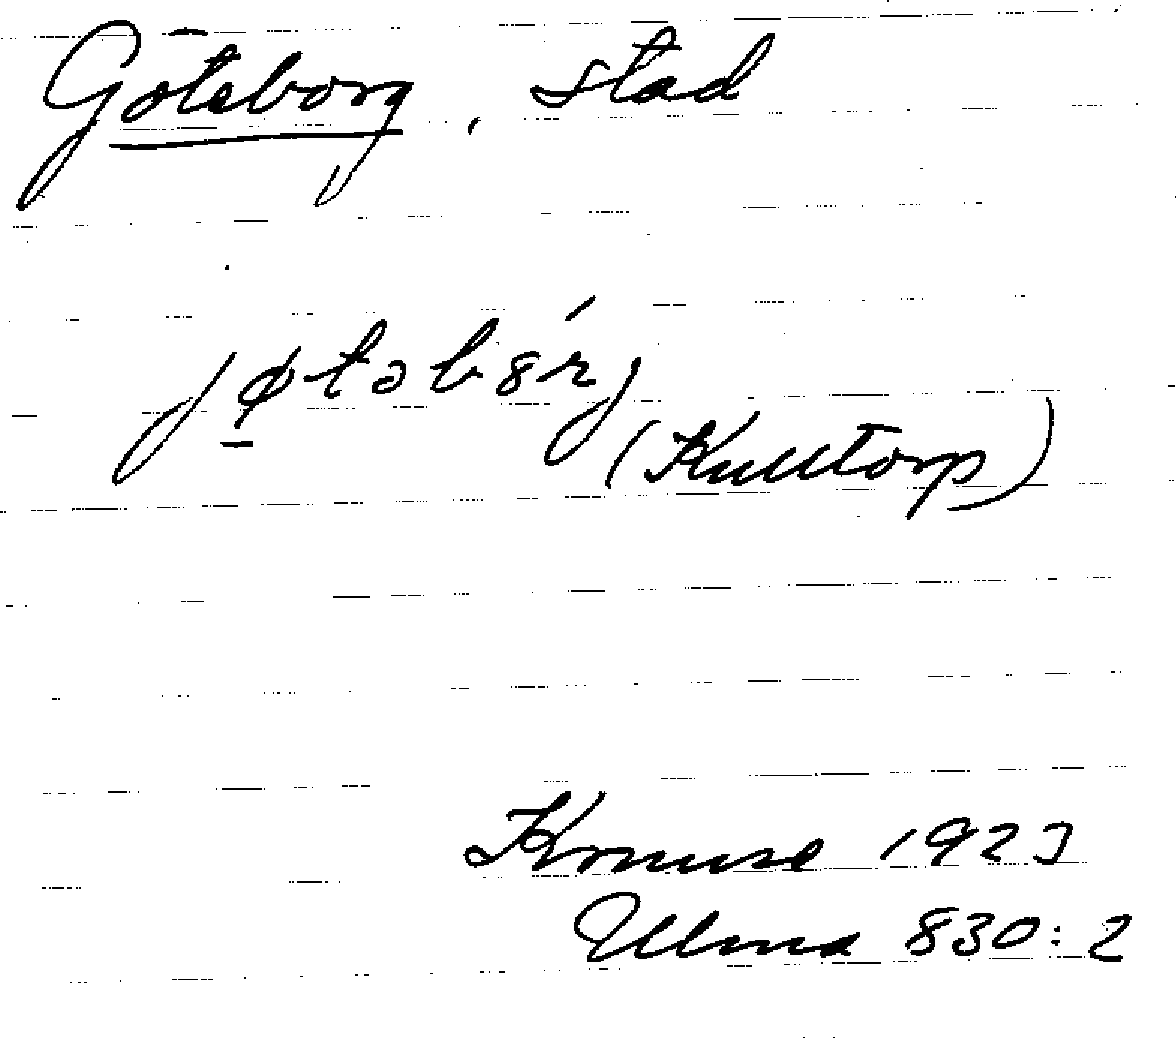 Göteborg, stad
jø̠təb8́rj
(Kulltorp)
Kronuse 1923
Ulma 830:2